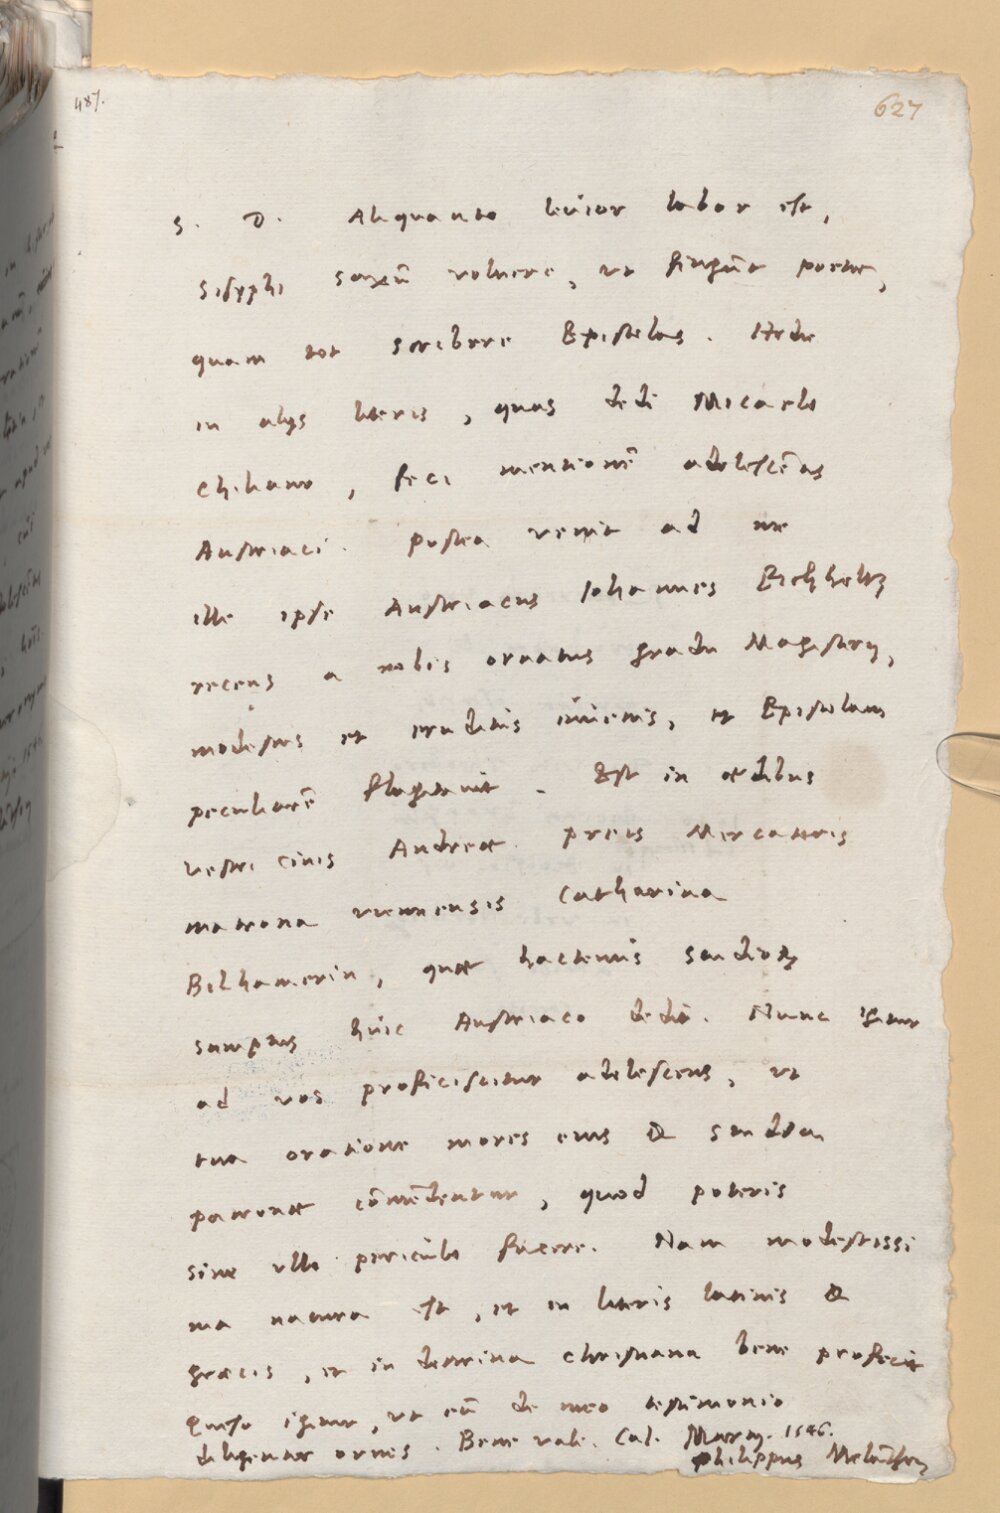 487.
627
S. D. Aliquanto levior labor est,
Sisyphi saxū volvere, ut fingūt poetae,
quam tot scribere Epistolas. Hodie
in alijs literis, quas dedi Micaelo
Chiliano, feci mentionē adolescētis
Austriaci. postea venit ad me
ille ipse Austriacus Iohannes Eichholtz
recens a nobis ornatus gradu Magisterij,
modestus et eruditus iuvenis, et Epistolam
peculiarē flagitavit. Est in aedibus
vestri civis Andreae preis Mercatoris
matrona viennensis Catharina
Bilhamerin, quae hactenus studiorū
sumptus huic Austriaco dedit. Nunc igitur
ad vos proficiscitur adolescens, ut
tua oratione mores eius & studia
patronae cōmēdentur, quod poteris
sine ullo periculo facere. Nam modestissi
ma natura est, et in literis latinis &
graecis, et in doctrina christiana bene profecit
Quaeso igitur, ut eū de meo testimonio
diligenter ornes. Bene vale. Cal. Martij. 1546.
philippus Melāthon